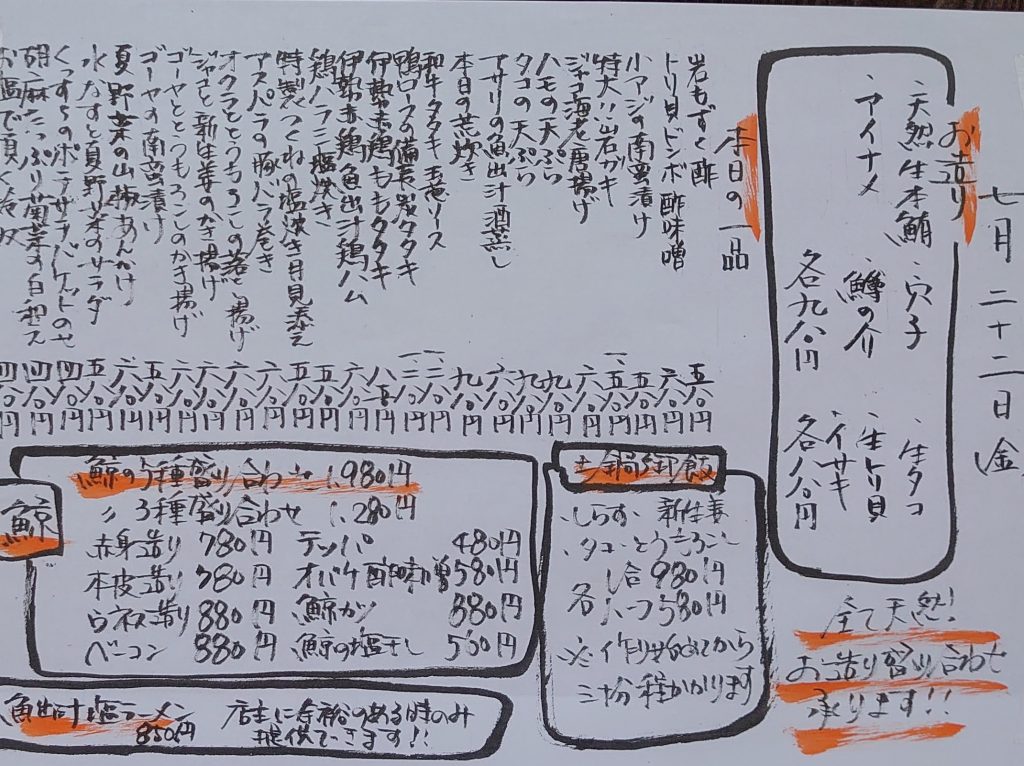 七月二十二日(金)
お造り
・天然生本鮪 ・穴子 ・生タコ
・アイナメ ・鱒の介 ・生トリ貝
・イサキ
各九八〇円 各八八〇円
全て天然!
お造り盛り合わせ
承ります!!
本日の一品
岩もずく酢 五八〇円
トリ貝ドンボ酢味噌 六八〇円
小アジの南蛮漬け 五八〇円
特大!!岩ガキ
ジャコ海老唐揚げ 六八〇円
ハモの天ぷら 九八〇円
タコの天ぷら 九八〇円
アサリの魚出汁酒蒸し 六八〇円
本日の荒炊き 九八〇円
和牛タタキ玉葱ソース
鴨ロースの備長炭タタキ
伊勢赤鶏ももタタキ
伊勢赤鶏魚出汁鶏ハム 六八〇円
鶏ハラミ塩焼き 五八〇円
特製つくねの塩焼き月見添え 五八〇円
アスパラの豚バラ巻き 六八〇円
オクラととうもろこしの落し揚げ 六八〇円
ジャコと新生姜のかき揚げ 六八〇円
ゴーヤととうもろこしのかき揚げ 六八〇円
ゴーヤの南蛮漬け 五八〇円
夏野菜の山椒あんかけ 六八〇円
水なすと夏野菜のサラダ 五八〇円
くっすらのポテサラバケットのせ 四八〇円
胡麻たっぷり菊菜の白和え 四八〇円
お塩で頂く冷奴 四八〇円
土鍋御飯
・しらす・新生姜
・タコ・とうもろこし
各 二合 980円
ハーフ 580円
※作り始めてから
三十分程かかります
鯨
鯨の5種盛り合わせ 1,980円
〃3種盛り合わせ 1,280円
赤身造り 780円 テッパ 480円
本皮造り 780円 オバケ酢味噌 580円
畝須造り 880円 鯨カツ 880円
ベーコン 880円 鯨の塩干し 500円
魚出汁塩ラーメン
850円
店主に余裕のある時のみ
提供できます!!